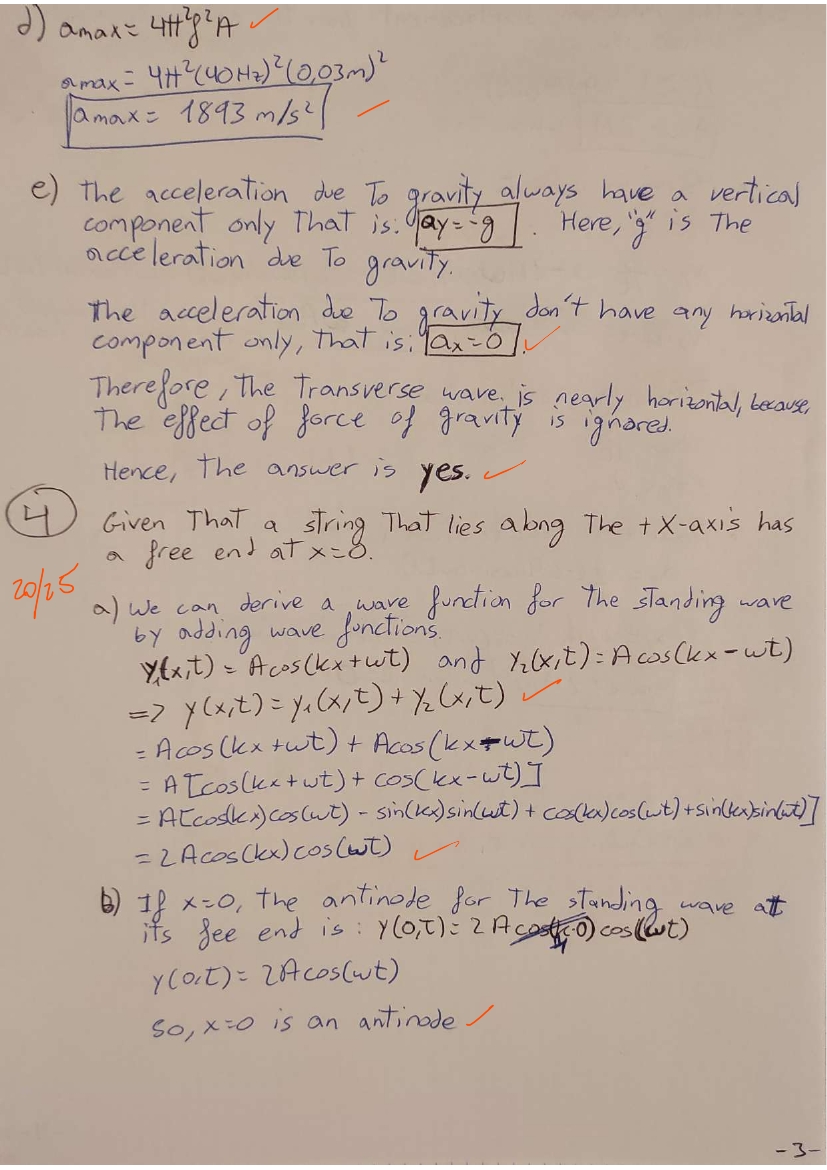 d) amax = 4π²f²A ✓
amax = 4π²(40Hz)²(0,03m)²
amax = 1893 m/s² ✓
e) The acceleration due To gravity always have a vertical
component only That is: ay = -g . Here, "g" is The
acceleration due To gravity.
The acceleration due To gravity don't have any horizontal
component only, That is; ax = 0 . ✓
Therefore, The Transverse wave. is nearly horizontal, because,
The effect of force of gravity is ignored.
Hence, The answer is yes. ✓
4 Given That a string That lies along The +X-axis has
a free end at x=0.
20/25
a) We can derive a wave function for The standing wave
by adding wave functions.
y₁(x,t) = Acos(kx+ωt) and y₂(x,t) = Acos(kx-ωt)
=> y(x,t) = y₁(x,t) + y₂(x,t) ✓
= Acos(kx+ωt) + Acos(kx-ωt)
= A[cos(kx+ωt) + cos(kx-ωt)]
= A[cos(kx)cos(ωt) - sin(kx)sin(ωt) + cos(kx)cos(ωt)+sin(kx)sin(ωt)]
= 2Acos(kx)cos(ωt) ✓
b) If x=0, The antinode for The standing wave at
its fee end is: y(0,t) = 2Acos(k·0)cos(ωt)
y(0,t) = 2Acos(ωt)
So, x=0 is an antinode ✓
-3-